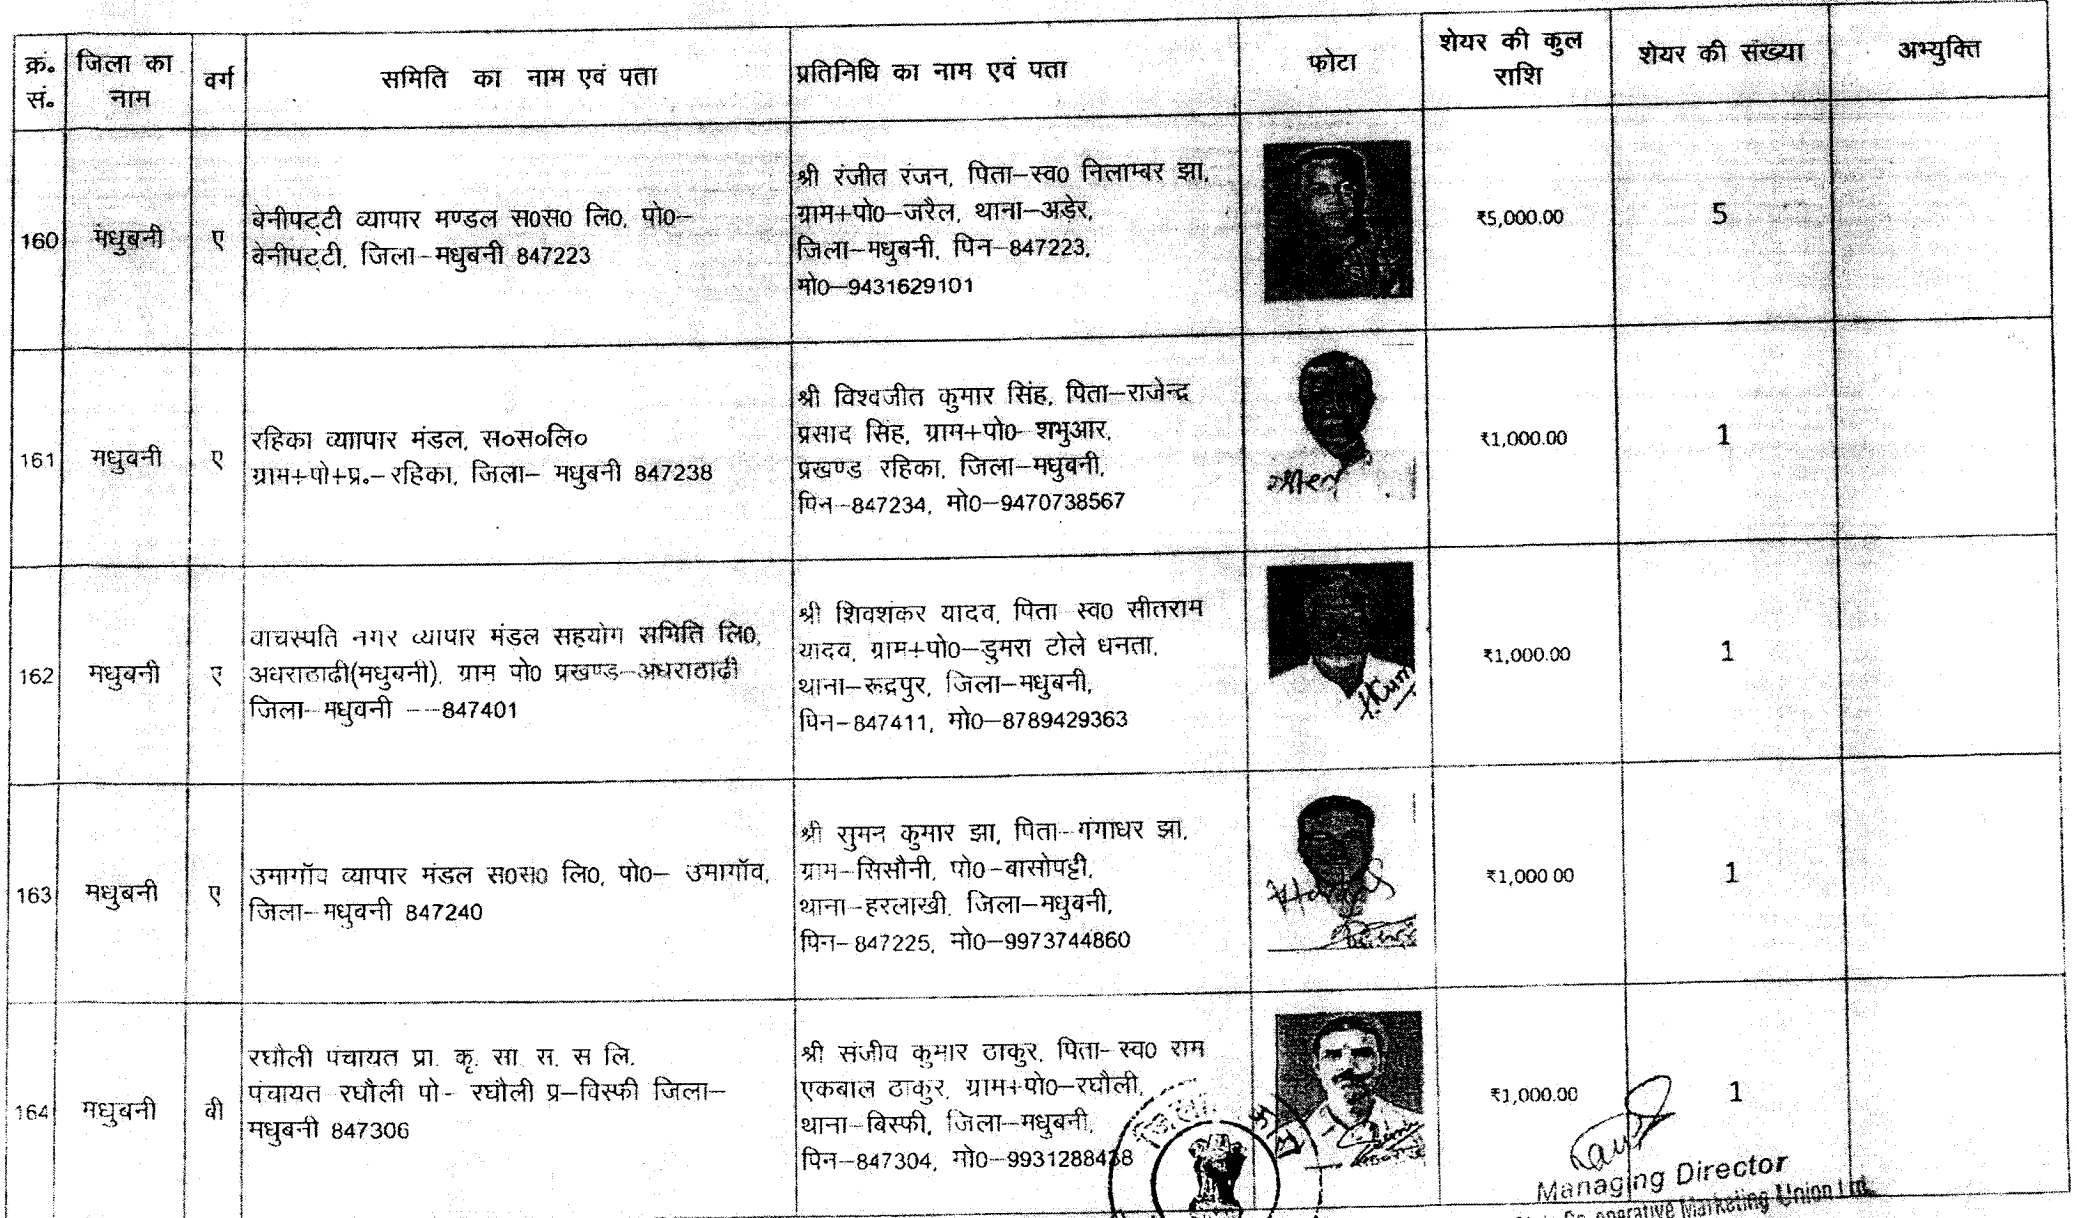 क्रं. सं. जिला का नाम वर्ग समिति का नाम एवं पता प्रतिनिधि का नाम एवं पता फोटा शेयर की कुल राशि शेयर की संख्या अभ्युक्ति
160 मधुबनी ए
बेनीपट्टी व्यापार मण्डल स0स0 लि0, पो0–
बेनीपट्टी, जिला–मधुबनी 847223
श्री रंजीत रंजन, पिता–स्व0 निलाम्बर झा,
ग्राम+पो0–जरैल, थाना–अडेर,
जिला–मधुबनी, पिन–847223,
मो0–9431629101
₹5,000.00 5
161 मधुबनी ए
रहिका व्याापार मंडल, स०स०लि०
ग्राम+पो+प्र.–रहिका, जिला– मधुबनी 847238
श्री विश्वजीत कुमार सिंह, पिता–राजेन्द्र
प्रसाद सिंह, ग्राम+पो0–शभुआर,
प्रखण्ड रहिका, जिला–मधुबनी,
पिन–847234, मो0–9470738567
₹1,000.00 1
162 मधुबनी ए
वाचस्पति नगर व्यापार मंडल सहयोग समिति लि0,
अधराठाढी(मधुबनी), ग्राम पो0 प्रखण्ड–अधराठाढी
जिला–मधुबनी ––847401
श्री शिवशंकर यादव, पिता स्व0 सीतराम
यादव, ग्राम+पो0–डुमरा टोले धनता,
थाना–रूद्रपुर, जिला–मधुबनी,
पिन–847411, मो0–8789429363
₹1,000.00 1
163 मधुबनी ए
उमागॉव व्यापार मंडल स0स0 लि0, पो0– उमागॉव,
जिला–मधुबनी 847240
श्री सुमन कुमार झा, पिता–गंगाधर झा,
ग्राम–सिसौनी, पो0–बासोपट्टी,
थाना–हरलाखी, जिला–मधुबनी,
पिन–847225, मो0–9973744860
₹1,000 00 1
164 मधुबनी बी
रघौली पंचायत प्रा. कृ. सा. स. स लि.
पंचायत रघौली पो- रघौली प्र–विस्फी जिला–
मधुबनी 847306
श्री संजीव कुमार ठाकुर, पिता–स्व0 राम
एकबाल ठाकुर, ग्राम+पो0–रघौली,
थाना–बिस्फी, जिला–मधुबनी,
पिन–847304, मो0–9931288438
₹1,000.00 1
Managing Director
Co-operative Marketing Union Ltd.